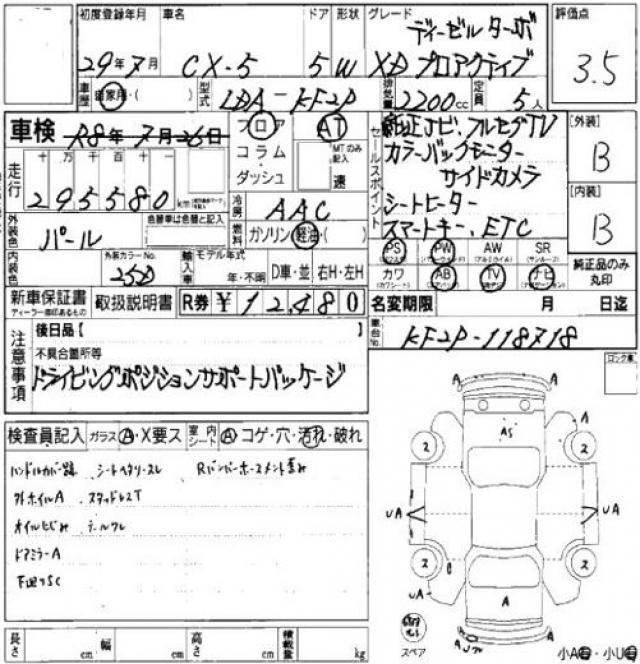 初度登録年月 車名 ドア 形状 グレード 評価点
ディーゼルターボ
29年7月 CX-5 5 W XD プロアクティブ 3.5
車歴 自家用・( ) 型式 LDA-KF2P 排気量 2200cc 定員 5人
車検 R8年7月26日 フロア AT セールスポイント 純正ナビ、フルセグTV [外装]
コラム MTのみ記入 カラーバックモニター B
走行 十万千百十一 ダッシュ 速 サイドカメラ
295580 km 冷房 AAC シートヒーター [内装]
外装色 パール 色替車は色替と記入 燃料 ガソリン・軽油・( ) スマートキー、ETC B
PS PW AW SR
内装色 外装カラーNo. 25D 輸入車 モデル年式 年・不明 D車・並 右H・左H カワ AB TV ナビ 純正品のみ丸印
新車保証書 ディーラー印あるもの 取扱説明書 R券 ¥12,480 名変期限 月 日迄
注意事項 後日品【 】 車台No. KF2P-118718
不具合箇所等
ドライビングポジションサポートパッケージ
検査員記入 ガラス A・X要ス 室内シート A コゲ・穴・汚れ・破れ
ハンドルカバー跡 シートヘタリ・スレ
外ホイルA スタッドレスT
オイルにじみ
ドアミラーA
下回りSC
A
AS
A
2 2
UA UA
2 2
UA
A
スペア
長さ cm 幅 cm 高さ cm 積載量 kg